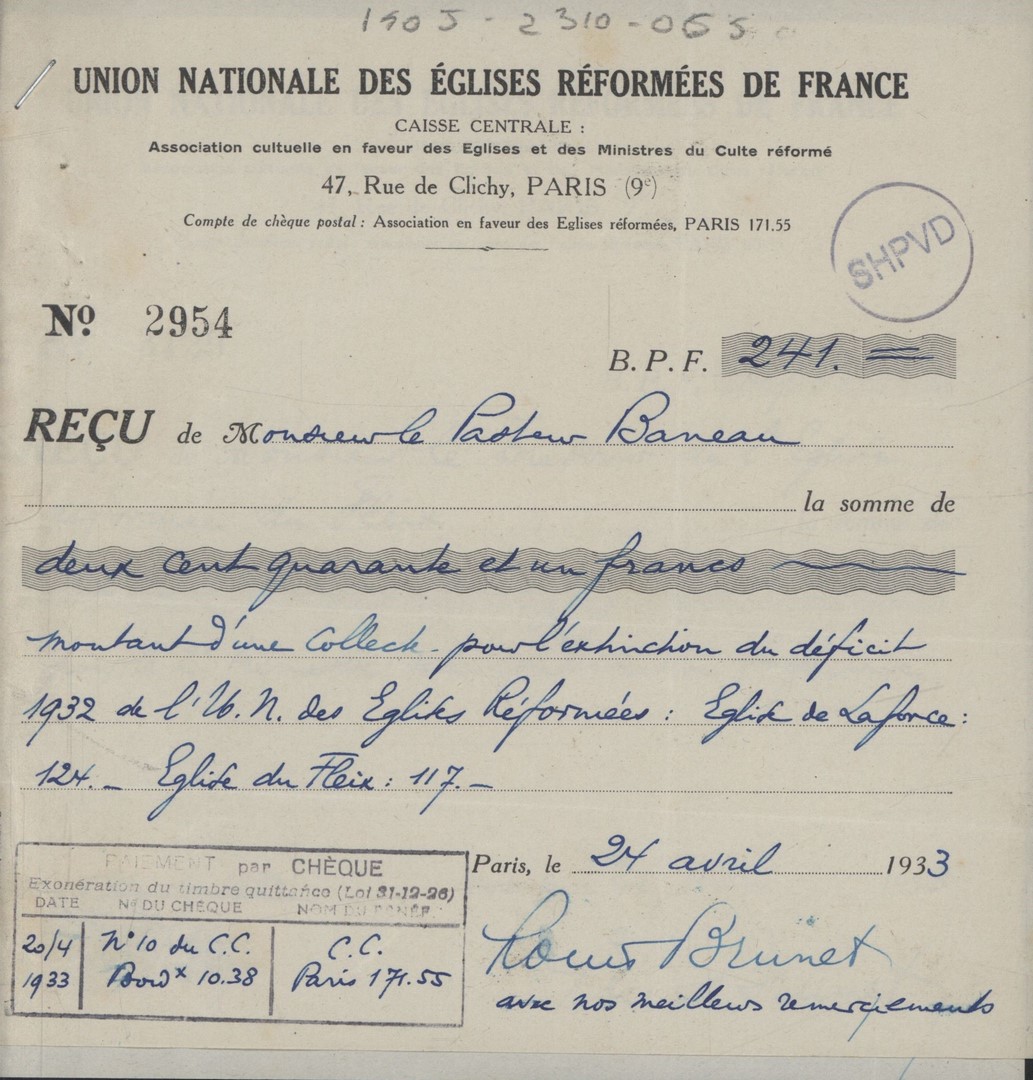 1905-2310-065
UNION NATIONALE DES ÉGLISES RÉFORMÉES DE FRANCE
CAISSE CENTRALE :
Association cultuelle en faveur des Eglises et des Ministres du Culte réformé
47, Rue de Clichy, PARIS (9e)
Compte de chèque postal : Association en faveur des Eglises réformées, PARIS 171.55
SHPVD
No 2954
B. P. F. 241. =
REÇU de Monsieur le Pasteur Baneau
la somme de
deux cent quarante et un francs
montant d'une Collecte pour l'extinction du déficit
1932 de l'U. N. des Eglises Réformées : Eglise de Laforce :
124. - Eglise du Fleix : 117. -
Paris, le 24 avril 1933
PAIEMENT par CHÈQUE
Exonération du timbre quittance (Loi 31-12-26)
DATE No DU CHÈQUE NOM DU BÉNÉF.
20/4 No 10 du C.C. C.C.
1933 Bordx 10.38 Paris 171.55
Louis Brunet
avec nos meilleurs remerciements